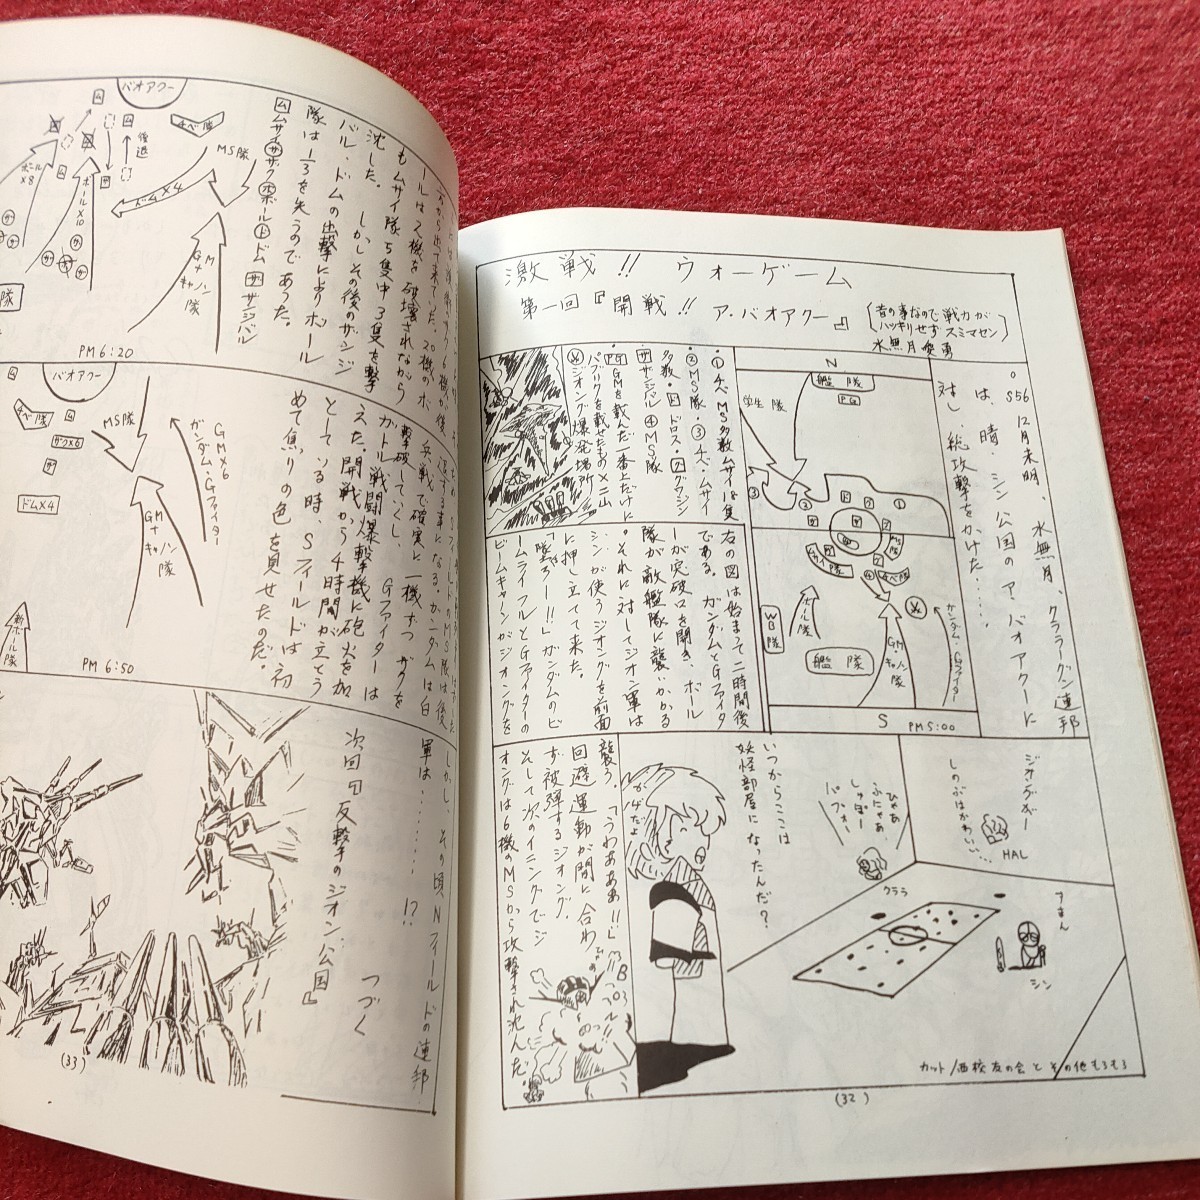 激戦!! ウォーゲーム
第一回『開戦!! ア・バオアクー』
(昔の事なので戦力が
ハッキリせずスミマセン)
水無月
。S56 12月未明、水無月、クララーグン連邦
は、晴、シン公国のア・バオアクーに
対し、総攻撃をかけた……
N
艦隊
PG
学生隊
③
②
①
④
チベ隊
WB隊
ボール隊
艦隊
GM+キャノン隊
ガンダム・Gファイター
S
PM5:00
・①チベ、MS多数ムサイ18隻
・②MS隊・③チベ、ムサイ
多数・ドロス・グワジン
ザンジバル④MS隊
PG GMを載んだ一番上だけに
パブリクを載せたもの×二山
ジオング爆発場所
右の図は始まって二時間後
である。ガンダムとGファイタ
ーが突破口を開き、ボール
隊が敵艦隊に襲いかかる
。それに対してジオン軍は
シンが使うジオングを前面
に押し立てて来た。
「墜ろー!!」ガンダムのビ
ームライフルとGファイターの
ビームキャノンがジオングを
襲う。「うわあああ!!」
回避運動が間に合わ
ず被弾するジオング。
そして次のイニングでジ
オングは6機のMSから攻撃され沈んだ。
ジオングギー
しのぶはかわいい…
HAL
ひゃあ
ふにゃあ
しゅぼー
パフォー
クララ
いつからここは
妖怪部屋になったんだ?
すまん
シン
カット/西校友の会とその他もろもろ
(32)
バオアクー
チベ隊
MS隊
後退
ボール×8
ボール×10
ドム×4
GM+キャノン隊
隊
PM6:20
ールは2機を破壊されながら
もムサイ隊5隻中3隻を撃
沈した。しかしその後のザンジ
バル、ドムの出撃によりボール
隊は1/3を失うのであった。
ムムサイ サザク ボボール ドドム ササンジバル
バオアクー
チベ隊
ザク×6
MS隊
ドム×4
GM×6
ガンダム・Gファイター
GM+キャノン隊
新ボール隊
PM6:50
兵戦で確実に一機ずつザクを
撃破してくし、Gファイターは
ガトル戦闘爆撃機に砲火を加
えた。開戦から4時間が立とう
としている時、Sフィールドは初
めて焦りの色を見せたのだ。
しかし、その頃Nフィールドの連邦
軍は……!?
次回『反撃のジオン公国』
つづく
(33)